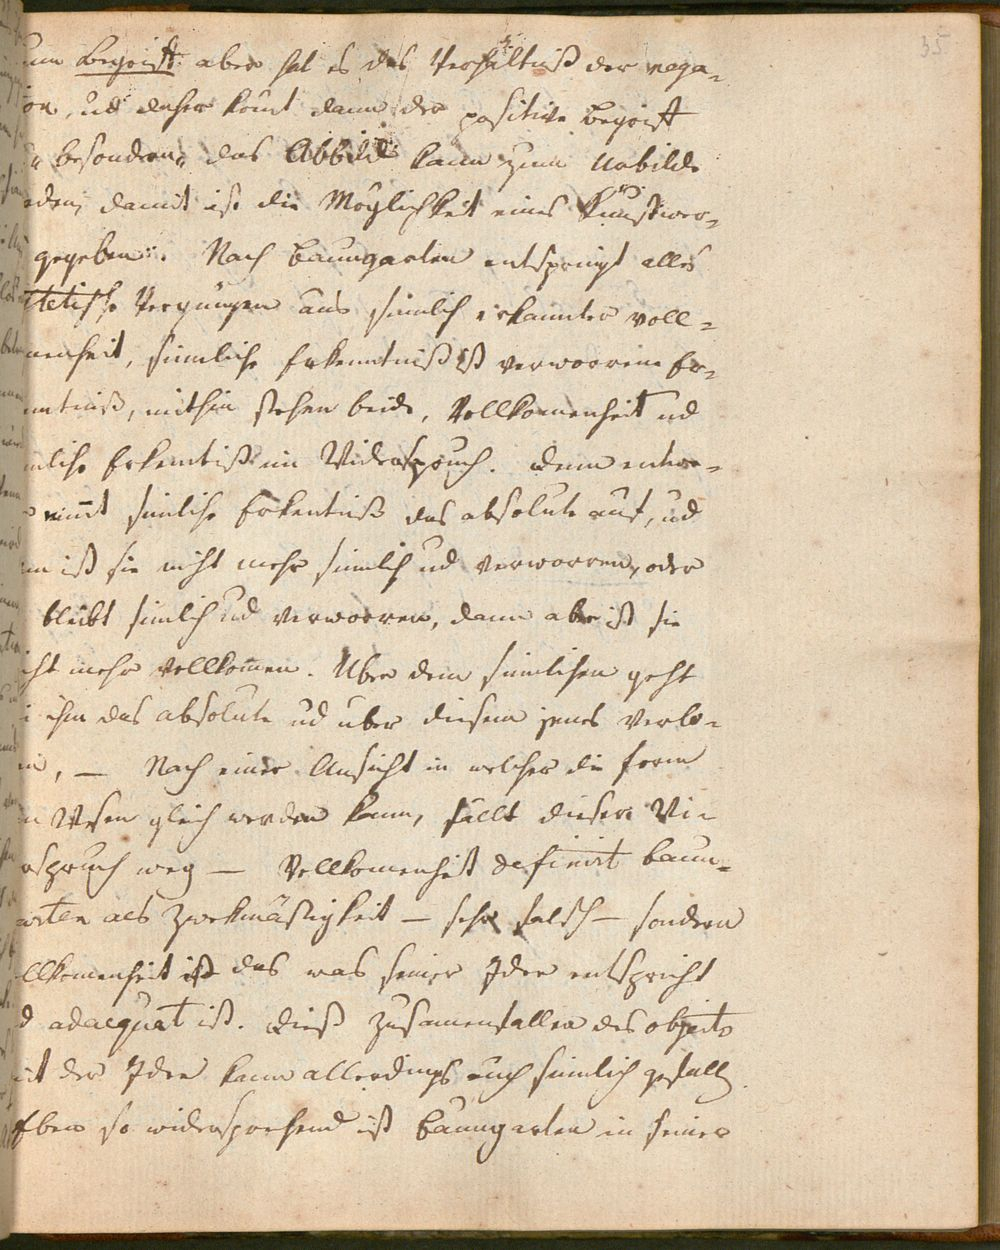 35
um Begriff aber hat es das Verhältniß der nega-
ion, ud daher komt dann der positive Begriff
"besondern" das Abbild kann zum Urbilde
rden, damit ist die Möglichkeit eines Kunstwer-
gegeben. Nach Baumgarten entspringt alles
tetische Vergnügen aus sinnlich erkannter voll-
menheit, sinnliche Erkenntniß ist verworrene Er-
nntniß, mithin stehen beide, Vollkomenheit ud
nliche Erkentniß im Widerspruch. denn entwe-
nimt sinliche Erkentniß das absolute auf, ud
nn ist sie nicht mehr sinnlich ud verworren, oder
bleibt sinlich ud verworren, dann aber ist sie
cht mehr vollkomen. Uber dem sinnlichen geht
ihm das absolute ud uber diesem jenes verlo-
n, — Nach einer Ansicht in welcher die form
m Wesen gleich werden kann, fällt dieser Wi-
rspruch weg — Vollkomenheit definirt Baum-
arten als Zwekmäsigkeit — sehr falsch — sondern
llkomenheit ist das was seiner Idee entspricht
d adaequat ist. dieß Zusamenfallen des objects
it der Idee kann allerdings auch sinnlich gefallen
Eben so widersprechend ist Baumgarten in seiner